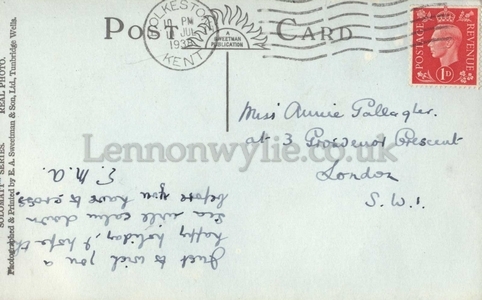 POST CARD
A
SWEETMAN
PUBLICATION
FOLKESTONE
PM
JUL
KENT
POSTAGE
REVENUE
1D
"SOLOMATT" SERIES. REAL PHOTO.
Photographed & Printed by E. A. Sweetman & Son, Ltd, Tunbridge Wells.
Miss Annie Gallagher.
at 3 Grosvenor Crescent
London
S.W.1.
Just to wish you a
happy holiday, I hope the
sea will calm down
before you have to cross.
E.M.A.
Lennonwylie.co.uk